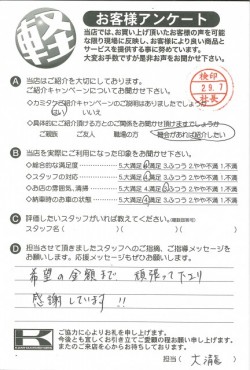 軽
お客様アンケート
当店では、お買い上げ頂いたお客様の声を可能
な限り現場に反映し、お客様により良い商品と
サービスを提供する事に努めています。
大変お手数ですが是非お声をお聞かせ下さい。
Ⓐ 当店はご紹介を大切にしております。
ご紹介キャンペーンについてお聞かせ下さい。
検印
29.7
社長
ご紹介キャンペーンのご説明はありましたでしょうか
はい いいえ
◇具体的にご紹介頂ける方とのご関係をお聞かせ頂けますでしょうか
ご親族 ご友人 職場の方 機会があれば紹介したい
Ⓑ 当店を実際にご利用になった印象をお聞かせ下さい。
◇総合的な満足度 5.大満足 4.満足 3.ふつう 2.やや不満 1.不満
◇スタッフの対応 5.大満足 4.満足 3.ふつう 2.やや不満 1.不満
◇お店の雰囲気、清掃 5.大満足 4.満足 3.ふつう 2.やや不満 1.不満
◇納車時のお車の状態 5.大満足 4.満足 3.ふつう 2.やや不満 1.不満
Ⓒ 評価したいスタッフがいれば教えてください。(複数回答可)
スタッフ名( )( )
Ⓓ 担当させて頂きましたスタッフへのご指摘、ご指導メッセージを
お願いします。応援メッセージもぜひお願いします。
希望の金額まで 頑張って下さり
感謝しています!!
K
ご協力に心よりお礼を申し上げます。
今後とも宜しくお引き立てご愛顧の程お願い申し上げます。
またのご来店を心からお待ちしております。
担当( 大瀧 )